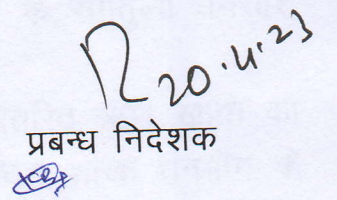 20.4.23
प्रबन्ध निदेशक